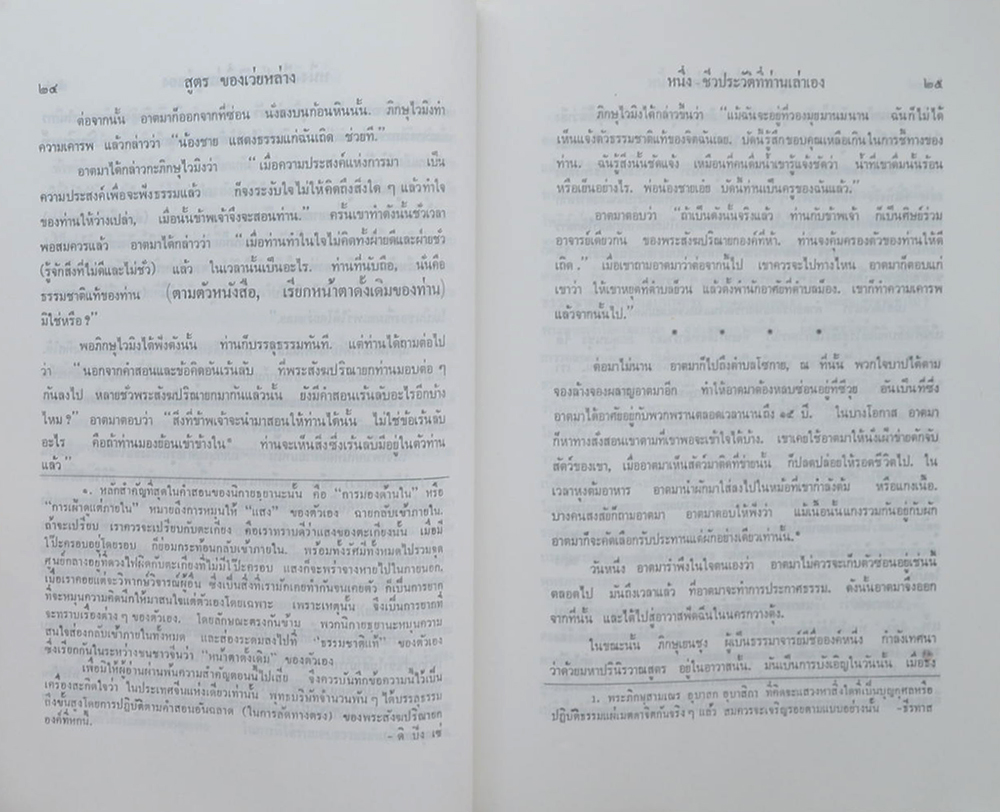 ๒๔
สูตร ของเว่ยหล่าง
ต่อจากนั้น อาตมาก็ออกจากที่ซ่อน นั่งลงบนก้อนหินนั้น. ภิกษุไวมิงทำ
ความเคารพ แล้วกล่าวว่า "น้องชาย แสดงธรรมแก่ฉันเถิด ช่วยที."
อาตมาได้กล่าวกะภิกษุไวมิงว่า "เมื่อความประสงค์แห่งการมา เป็น
ความประสงค์เพื่อจะฟังธรรมแล้ว ก็จงระงับใจไม่ให้คิดถึงสิ่งใด ๆ แล้วทำใจ
ของท่านให้ว่างเปล่า, เมื่อนั้นข้าพเจ้าจึงจะสอนท่าน." ครั้นเขาทำดังนั้นชั่วเวลา
พอสมควรแล้ว อาตมาได้กล่าวว่า "เมื่อท่านทำในใจไม่คิดทั้งฝ่ายดีและฝ่ายชั่ว
(รู้จักสิ่งที่ไม่ดีและไม่ชั่ว) แล้ว ในเวลานั้นเป็นอะไร. ท่านที่นับถือ, นั่นคือ
ธรรมชาติแท้ของท่าน (ตามตัวหนังสือ, เรียกหน้าตาดั้งเดิมของท่าน)
มิใช่หรือ?"
พอภิกษุไวมิงได้ฟังดังนั้น ท่านก็บรรลุธรรมทันที. แต่ท่านได้ถามต่อไป
ว่า "นอกจากคำสอนและข้อคิดอันเร้นลับ ที่พระสังฆปริณายกท่านมอบต่อ ๆ
กันลงไป หลายชั่วพระสังฆปริณายกมากันแล้วนั้น ยังมีคำสอนเร้นลับอะไรอีกบ้าง
ไหม?" อาตมาตอบว่า "สิ่งที่ข้าเจ้าจะนำมาสอนให้ท่านได้นั้น ไม่ใช่ข้อเร้นลับ
อะไร คือถ้าท่านมองย้อนเข้าข้างใน* ท่านจะเห็นสิ่งซึ่งเร้นลับมีอยู่ในตัวท่าน
แล้ว"
๑. หลักสำคัญที่สุดในคำสอนของนิกายธยานะนั้น คือ "การมองด้านใน" หรือ
"การเฝ้าดูแต่ภายใน" หมายถึงการหมุนให้ "แสง" ของตัวเอง ฉายกลับเข้าภายใน.
ถ้าจะเปรียบ เราควรจะเปรียบกับตะเกียง คือเราทราบดีว่าแสงของตะเกียงนั้น เมื่อมี
โป๊ะครอบอยู่โดยรอบ ก็ย่อมกระท้อนกลับเข้าภายใน. พร้อมทั้งรัศมีทั้งหมดไปรวมจุด
ศูนย์กลางอยู่ที่ดวงไฟผิดกับตะเกียงที่ไม่มีโป๊ะครอบ แสงก็จะพร่าจางหายไปในภายนอก,
เมื่อเราคอยแต่จะวิพากษ์วิจารณ์ผู้อื่น ซึ่งเป็นสิ่งที่เรามักเคยทำกันจนเคยตัว ก็เป็นการยาก
ที่จะหมุนความคิดนึกให้มาสนใจแต่ตัวเองโดยเฉพาะ เพราะเหตุนั้น จึงเป็นการยากที่
จะทราบเรื่องต่าง ๆ ของตัวเอง. โดยลักษณะตรงกันข้าม พวกนิกายธยานะหมุนความ
สนใจส่องกลับเข้าภายในทั้งหมด และส่องระดมลงไปที่ 'ธรรมชาติแท้' ของตัวเอง
ซึ่งเรียกกันในระหว่างชนชาวจีนว่า "หน้าตาดั้งเดิม" ของตัวเอง
เพื่อมิให้ผู้อ่านผ่านพ้นความสำคัญตอนนี้ไปเสีย จึงควรบันทึกข้อความไว้เป็น
เครื่องสะกิดใจว่า ในประเทศจีนแห่งเดียวเท่านั้น พุทธบริษัทจำนวนพัน ๆ ได้บรรลุธรรม
ถึงขั้นสูงโดยการปฏิบัติตามคำสอนอันฉลาด (ในการลัดทางตรง) ของพระสังฆปริณายก
องค์ที่หกนี้.
- ดิ บิง เซ่
หนึ่ง - ชีวประวัติที่ท่านเล่าเอง
๒๕
ภิกษุไวมิงได้กล่าวขึ้นว่า "แม้ฉันจะอยู่ที่วองมุยมานมนาน ฉันก็ไม่ได้
เห็นแจ้งตัวธรรมชาติแท้ของจิตฉันเลย. บัดนี้รู้สึกขอบคุณเหลือเกินในการชี้ทางของ
ท่าน. ฉันรู้สิ่งนั้นชัดแจ้ง เหมือนที่คนดื่มน้ำเขารู้แจ้งชัดว่า น้ำที่เขาดื่มนั้นร้อน
หรือเย็นอย่างไร. พ่อน้องชายเอ๋ย บัดนี้ท่านเป็นครูของฉันแล้ว."
อาตมาตอบว่า "ถ้าเป็นดังนั้นจริงแล้ว ท่านกับข้าพเจ้า ก็เป็นศิษย์ร่วม
อาจารย์เดียวกัน ของพระสังฆปริณายกองค์ที่ห้า. ท่านจงคุ้มครองตัวของท่านให้ดี
เถิด." เมื่อเขาถามอาตมาว่าต่อจากนี้ไป เขาควรจะไปทางไหน อาตมาก็ตอบแก่
เขาว่า ให้เขาหยุดที่ตำบลย็วน แล้วตั้งพำนักอาศัยที่ตำบลม็อง. เขาก็ทำความเคารพ
แล้วจากนั้นไป."
* * * *
ต่อมาไม่นาน อาตมาก็ไปถึงตำบลโซกาย, ณ ที่นั้น พวกใจบาปได้ตาม
จองล้างจองผลาญอาตมาอีก ทำให้อาตมาต้องหลบซ่อนอยู่ที่ซีวุย อันเป็นที่ซึ่ง
อาตมาได้อาศัยอยู่กับพวกพรานตลอดเวลานานถึง ๑๕ ปี. ในบางโอกาส อาตมา
ก็หาทางสั่งสอนเขาตามที่เขาพอจะเข้าใจได้บ้าง. เขาเคยใช้อาตมาให้นั่งเฝ้าข่ายดักจับ
สัตว์ของเขา, เมื่ออาตมาเห็นสัตว์มาติดที่ข่ายนั้น ก็ปลดปล่อยให้รอดชีวิตไป. ใน
เวลาหุงต้มอาหาร อาตมานำผักมาใส่ลงไปในหม้อที่เขากำลังต้ม หรือแกงเนื้อ.
บางคนสงสัยก็ถามอาตมา อาตมาตอบให้ฟังว่า แม้เนื้อนั้นแกงรวมกันอยู่กับผัก
อาตมาก็จะคัดเลือกรับประทานแต่ผักอย่างเดียวเท่านั้น.*
วันหนึ่ง อาตมารำพึงในใจตนเองว่า อาตมาไม่ควรจะเก็บตัวซ่อนอยู่เช่นนี้
ตลอดไป มันถึงเวลาแล้ว ที่อาตมาจะทำการประกาศธรรม. ดังนั้นอาตมาจึงออก
จากที่นั้น และได้ไปสู่อาวาสฟัดฉิ่นในนครกวางตุ้ง.
ในขณะนั้น ภิกษุเยนชุง ผู้เป็นธรรมาจารย์มีชื่อองค์หนึ่ง กำลังเทศนา
ว่าด้วยมหาปรินิรวาณสูตร อยู่ในอาวาสนั้น. มันเป็นการบังเอิญในวันนั้น เมื่อธง
1. พระภิกษุสามเณร อุบาสก อุบาสิกา ที่คิดจะแสวงหาสิ่งใดที่เป็นบุญกุศลหรือ
ปฏิบัติธรรมแผ่เมตตาจิตกันจริงๆ แล้ว สมควรจะเจริญรอยตามแบบอย่างนั้น -ธีรทาส